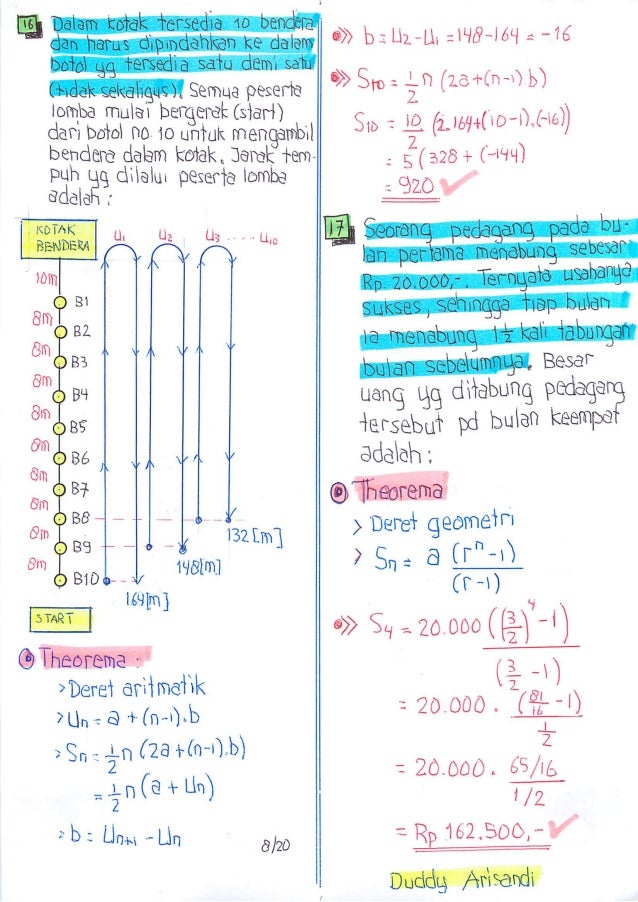 16 Dalam kotak tersedia 10 bendera
dan harus dipindahkan ke dalam
botol yg tersedia satu demi satu
(tidak sekaligus). Semua peserta
lomba mulai bergerak (start)
dari botol no. 10 untuk mengambil
bendera dalam kotak. Jarak tem-
puh yg dilalui peserta lomba
adalah :
KOTAK
BENDERA
U₁ U₂ U₃ ---- U₁₀
10m
B1
8m
B2
8m
B3
8m
B4
8m
B5
8m
B6
8m
B7
8m
B8
8m
B9
8m
B10
132 [m]
148[m]
164[m]
START
Theorema :
> Deret aritmatik
> Un = a + (n-1).b
> Sn = 1/2 n (2a + (n-1).b)
= 1/2 n (a + Un)
= b = Un+1 - Un
8/20
>> b = U₂ - U₁ = 148-164 = -16
>> S10 = 1/2 n (2a+(n-1) b)
S10 = 10/2 (2.164+(10-1).(-16))
= 5 (328 + (-144)
= 920
17 Seorang pedagang pada bu-
lan pertama menabung sebesar
Rp. 20.000,-. Ternyata usahanya
sukses, sehingga tiap bulan
ia menabung 1 1/2 kali tabungan
bulan sebelumnya. Besar
uang yg ditabung pedagang
tersebut pd bulan keempat
adalah :
Theorema
> Deret geometri
> Sn = a (rⁿ-1)/(r-1)
>> S4 = 20.000 ((3/2)⁴-1)/(3/2 -1)
= 20.000 . (81/16 -1)/(1/2)
= 20.000 . 65/16 / 1/2
= Rp 162.500,-
Duddy Arisandi